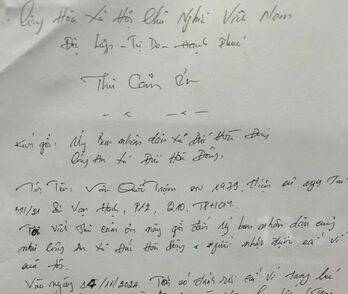 Cộng Hòa Xã Hội Chủ Nghĩa Việt Nam
Độc Lập - Tự Do - Hạnh Phúc
Thư Cảm Ơn
Kính gởi: Ủy ban nhân dân xã Đức Hòa Đông
Công An xã Đức Hòa Đông.
Tôi Tên: Văn Quốc sn 1979. Hiện cư ngụ Tại
Sư Vạn Hạnh, P12, Q10, TPHCM.
Tôi viết Thư cảm ơn này gởi đến Ủy ban nhân dân cũng
như Công An xã Đức Hòa Đông người nhặt được cái ví
của tôi.
Vào ngày 14/11/2024 Tôi có đánh rơi cái ví trong lúc